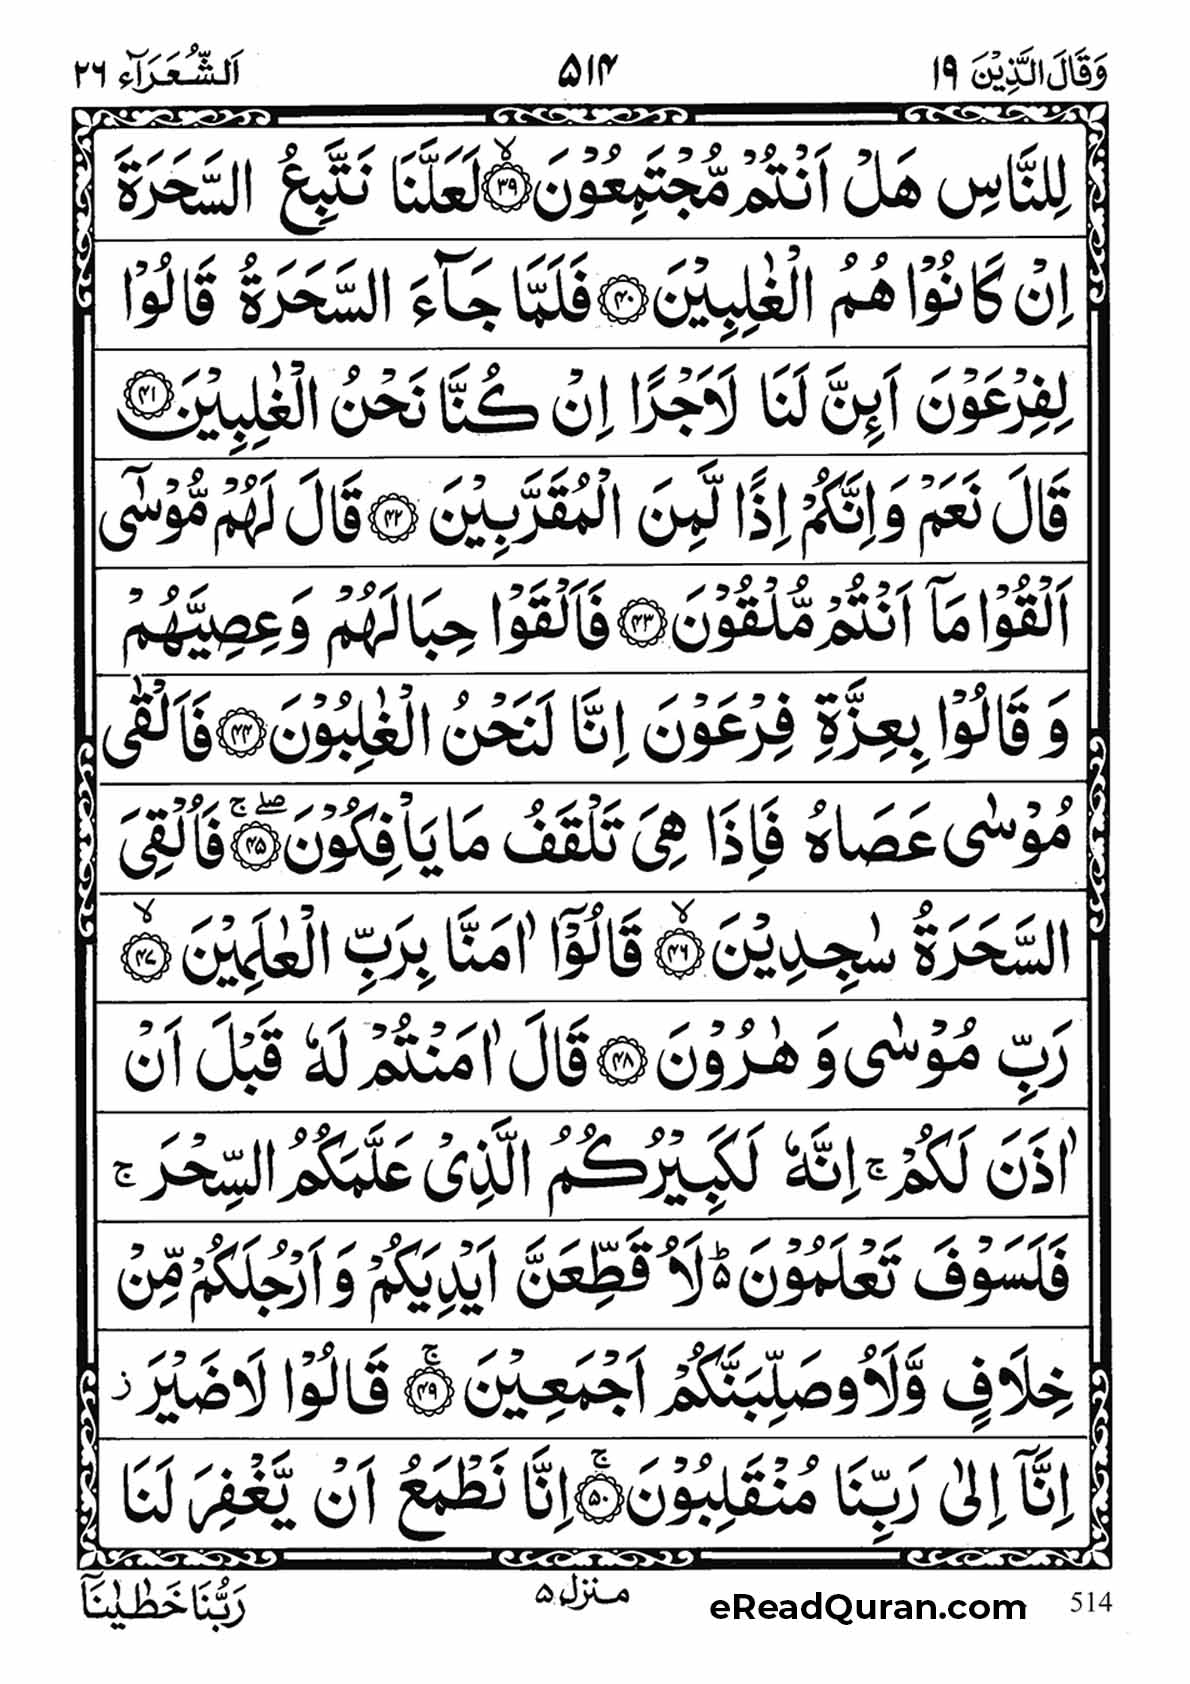 وَقَالَ الَّذِیْنَ ۱۹ ۵۱۴ اَلشُّعَرَآء ۲۶
لِلنَّاسِ هَلْ اَنْتُمْ مُّجْتَمِعُوْنَ ۙ﴿۳۹﴾ لَعَلَّنَا نَتَّبِعُ السَّحَرَةَ
اِنْ كَانُوْا هُمُ الْغٰلِبِیْنَ ﴿۴۰﴾ فَلَمَّا جَآءَ السَّحَرَةُ قَالُوْا
لِفِرْعَوْنَ اَىِٕنَّ لَنَا لَاَجْرًا اِنْ كُنَّا نَحْنُ الْغٰلِبِیْنَ ﴿۴۱﴾
قَالَ نَعَمْ وَاِنَّكُمْ اِذًا لَّمِنَ الْمُقَرَّبِیْنَ ﴿۴۲﴾ قَالَ لَهُمْ مُّوْسٰۤی
اَلْقُوْا مَاۤ اَنْتُمْ مُّلْقُوْنَ ﴿۴۳﴾ فَاَلْقَوْا حِبَالَهُمْ وَعِصِیَّهُمْ
وَ قَالُوْا بِعِزَّةِ فِرْعَوْنَ اِنَّا لَنَحْنُ الْغٰلِبُوْنَ ﴿۴۴﴾ فَاَلْقٰی
مُوْسٰی عَصَاهُ فَاِذَا هِیَ تَلْقَفُ مَا یَاْفِكُوْنَ ۖۚ﴿۴۵﴾ فَاُلْقِیَ
السَّحَرَةُ سٰجِدِیْنَ ۙ﴿۴۶﴾ قَالُوْۤا اٰمَنَّا بِرَبِّ الْعٰلَمِیْنَ ۙ﴿۴۷﴾
رَبِّ مُوْسٰی وَ هٰرُوْنَ ﴿۴۸﴾ قَالَ اٰمَنْتُمْ لَهٗ قَبْلَ اَنْ
اٰذَنَ لَكُمْ ۚ اِنَّهٗ لَكَبِیْرُكُمُ الَّذِیْ عَلَّمَكُمُ السِّحْرَ ۚ
فَلَسَوْفَ تَعْلَمُوْنَ ؕ۬ لَاُقَطِّعَنَّ اَیْدِیَكُمْ وَ اَرْجُلَكُمْ مِّنْ
خِلَافٍ وَّلَاُوصَلِّبَنَّكُمْ اَجْمَعِیْنَ ۚ﴿۴۹﴾ قَالُوْا لَا ضَیْرَ ؗ
اِنَّاۤ اِلٰی رَبِّنَا مُنْقَلِبُوْنَ ۚ﴿۵۰﴾ اِنَّا نَطْمَعُ اَنْ یَّغْفِرَ لَنَا
رَبُّنَا خَطٰیٰنَاۤ
منزل ۵
eReadQuran.com 514